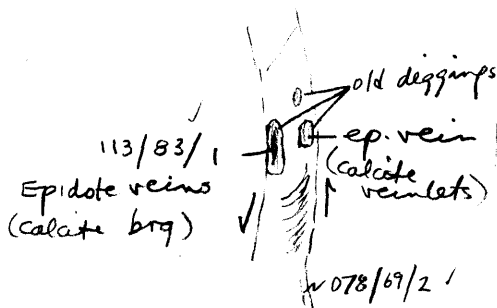 old diggings
113/83/1
Epidote veins
(calcite brg)
ep. vein
(calcite
veinlets)
~078/69/2